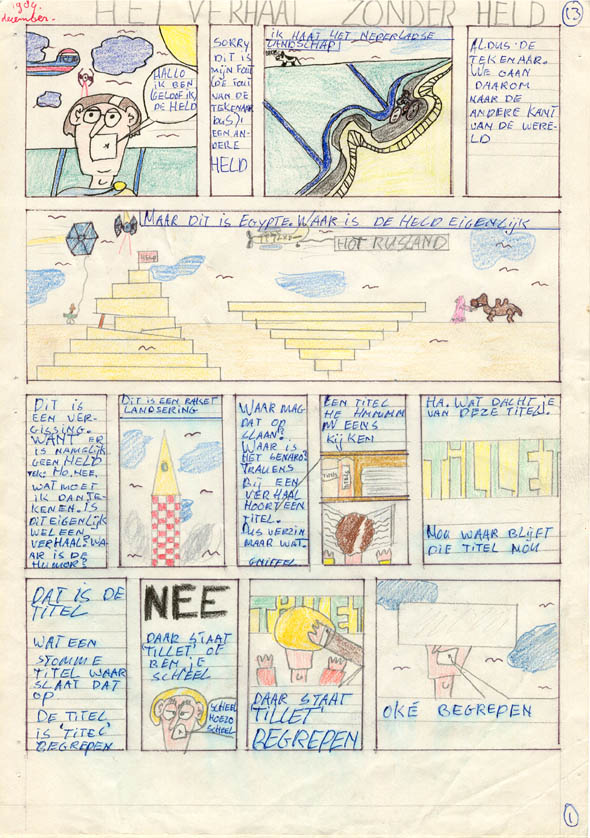 1984.
december.
HET VERHAAL ZONDER HELD
13
HALLO
IK BEN
GELOOF IK
DE HELD
SORRY
DIT IS
MIJN FOUT
(DE FOUT
VAN DE
TEKENAAR
DUS)!
EEN AN-
DERE
HELD
IK HAAT HET NEDERLADSE
LANDSCHAP!
ALDUS DE
TEKENAAR.
WE GAAN
DAAROM
NAAR DE
ANDERE KANT
VAN DE WERE-
LD
MAAR DIT IS EGYPTE. WAAR IS DE HELD EIGENLIJK
HOT RUSLAND
DIT IS
EEN VER-
GISSING.
WANT ER
IS NAMELIJK
GEEN HELD
HO. NEE.
WAT MOET
IK DAN TE-
KENEN. IS
DIT EIGENLIJK
WEL EEN
VERHAAL? WA-
AR IS DE
HUMOR?
DIT IS EEN RAKET
LANDSERING
WAAR MAG
DAT OP
SLAAN?
WAAR IS
HET
TRAUENS
BIJ EEN
VERHAAL
HOORT EEN
TITEL.
DUS VERZIN
MAAR WAT.
GNIFFEL
EEN TITEL
HE HMMMM
EENS
KIJKEN
TITELS
HA. WAT DACHT JE
VAN DEZE TITEL.
TILLET
NOU WAAR BLIJFT
DIE TITEL NOU
DAT IS DE
TITEL
WAT EEN
STOMME
TITEL WAAR
SLAAT DAT
OP
DE TITEL
IS 'TITEL'
BEGREPEN
NEE
DAAR STAAT
'TILLET' OF
BEN JE
SCHEEL
SCHEEL
HOEZO
SCHEEL
TILLET
DAAR STAAT
'TILLET'
BEGREPEN
OKÉ BEGREPEN
1